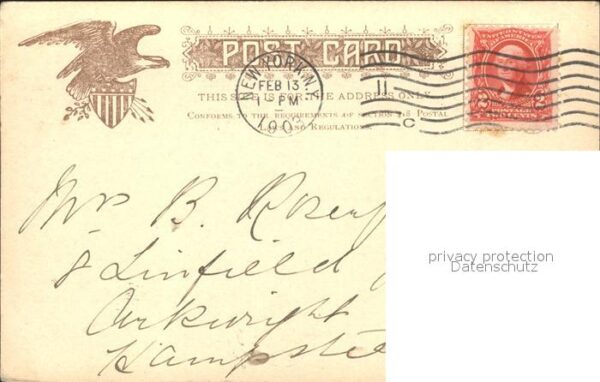 POST CARD
THIS SIDE IS FOR THE ADDRESS ONLY
CONFORMS TO THE REQUIREMENTS OF SECTION 216 POSTAL
LAWS AND REGULATIONS
NEW YORK N.Y.
FEB 13
1 PM
II
C
2 2
POSTAGE
TWO CENTS
Mrs B.
8 Linfield
Arkwright
Hampste
privacy protection
Datenschutz